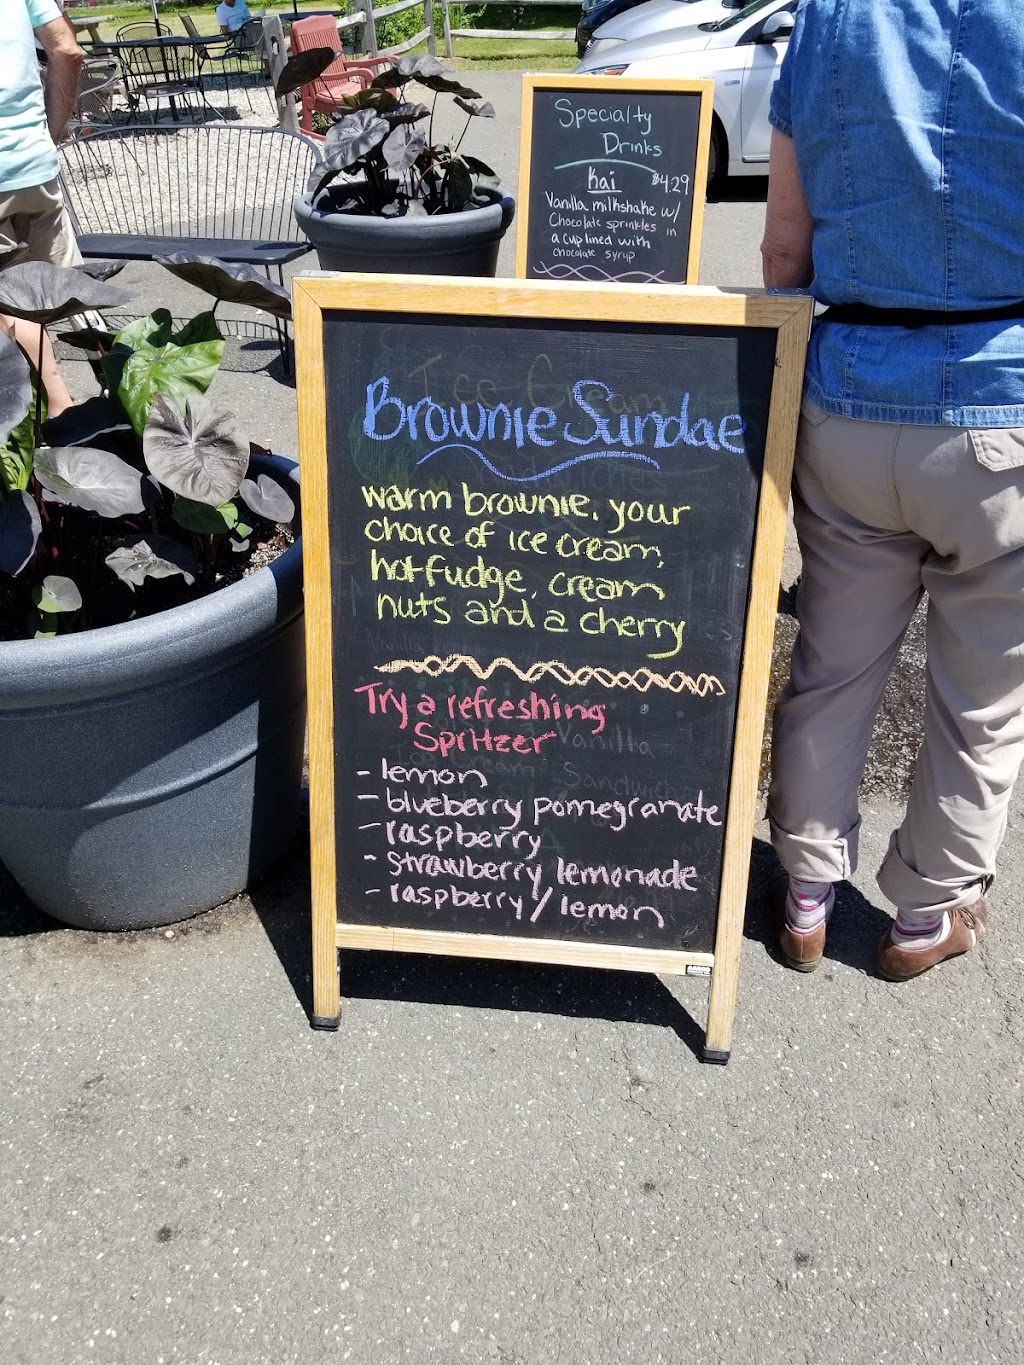 Specialty
Drinks
Kai $4.29
Vanilla milkshake w/
Chocolate sprinkles in
a cup lined with
chocolate syrup
Ice Cream
Brownie Sundae
Sandwiches
warm brownie, your
choice of ice cream,
hot fudge, cream
nuts and a cherry
Try a refreshing
Spritzer
Vanilla
Ice Cream Sandwich
- lemon
- blueberry pomegranate
- raspberry
- strawberry lemonade
- raspberry / lemon